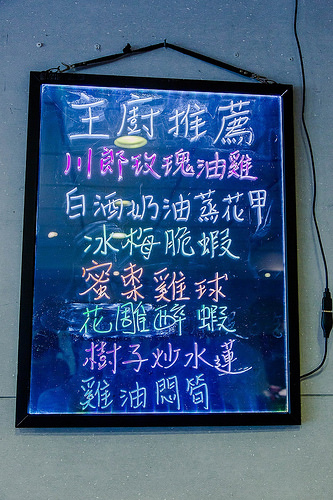 主廚推薦
川郎玫瑰油雞
白酒奶油蒸花甲
冰梅脆蝦
蜜棗雞球
花雕醉蝦
樹子炒水蓮
雞油悶筍